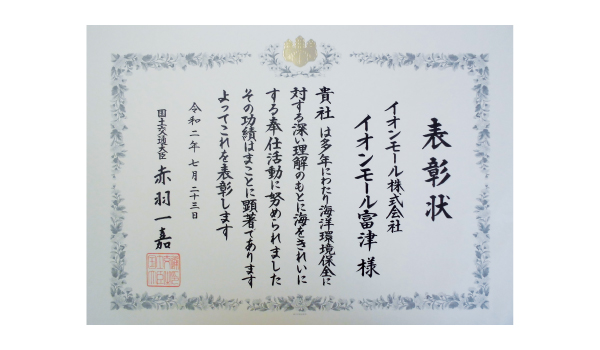 表彰状
イオンモール株式会社
イオンモール富津 様
貴社は多年にわたり海洋環境保全に
対する深い理解のもとに海をきれいに
する奉仕活動に努められました
その功績はまことに顕著であります
よってこれを表彰します
令和二年七月二十三日
国土交通大臣 赤羽一嘉